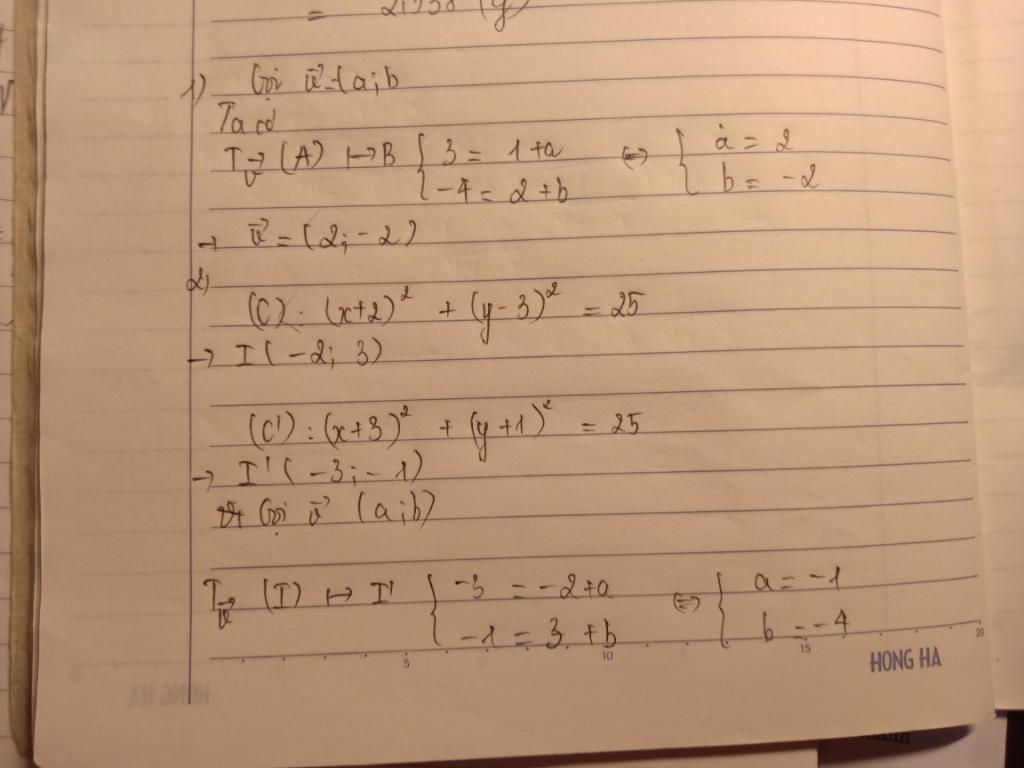 = 2,958 (g)
1) Gọi v⃗ = (a;b
Ta có
T v⃗ (A) ↦ B { 3 = 1+a ⇔ { a = 2
-4 = 2+b b = -2
→ v⃗ = (2; -2)
2)
(C): (x+2)² + (y-3)² = 25
→ I(-2; 3)
(C'): (x+3)² + (y+1)² = 25
→ I'(-3; -1)
Gọi v⃗ (a;b)
T v⃗ (I) ↦ I' { -3 = -2+a ⇔ { a = -1
-1 = 3+b b = -4
5 10 15 20
HONG HA